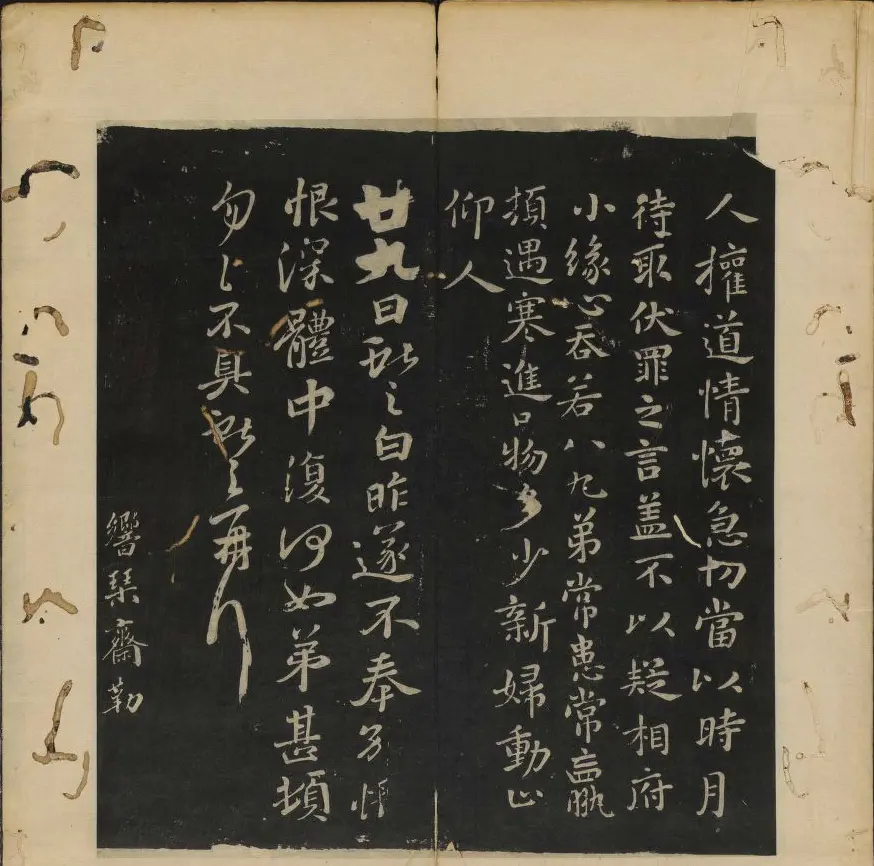 人權道情懷急切當以時月
待取伏罪之言蓋不以疑相府
小緣心吞若八九弟常患常羸
頓遇寒進口物多少新婦動止
仰人
廿九日獻之白昨遂不奉別悵
恨深體中復何如弟甚頓
勿勿不具獻之再拜
響琴齋勒